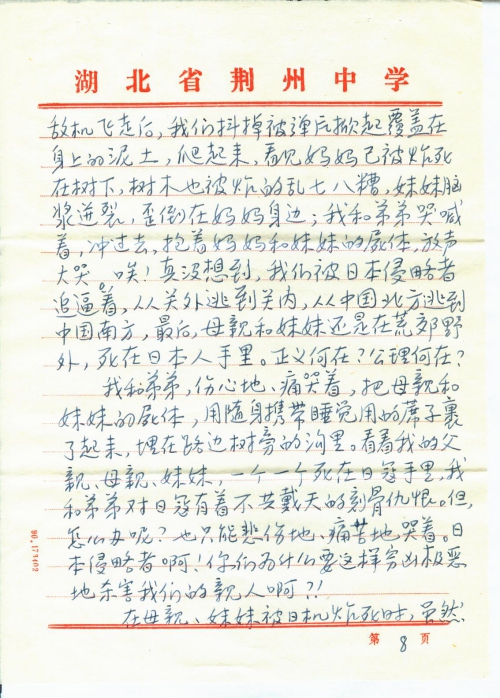 湖北省荆州中学
敌机飞走后,我们抖掉被弹片掀起覆盖在
身上的泥土,爬起来,看见妈妈已被炸死
在树下,树木也被炸的乱七八糟,妹妹脑
浆迸裂,歪倒在妈妈身边;我和弟弟哭喊
着,冲过去,抱着妈妈和妹妹的尸体,放声
大哭。唉!真没想到,我们被日本侵略者
追逼着,从关外逃到关内,从中国北方逃到
中国南方,最后,母亲和妹妹还是在荒郊野
外,死在日本人手里。正义何在?公理何在?
我和弟弟,伤心地、痛哭着,把母亲和
妹妹的尸体,用随身携带睡觉用的席子裹
了起来,埋在路边树旁的沟里。看着我的父
亲、母亲、妹妹,一个一个死在日寇手里,我
和弟弟对日寇有着不共戴天的刻骨仇恨。但,
怎么办呢?也只能悲伤地、痛苦地哭着。日
本侵略者啊!你们为什么要这样穷凶极恶
地杀害我们的亲人啊?!
在母亲、妹妹被日机炸死时,虽然
第 8 页